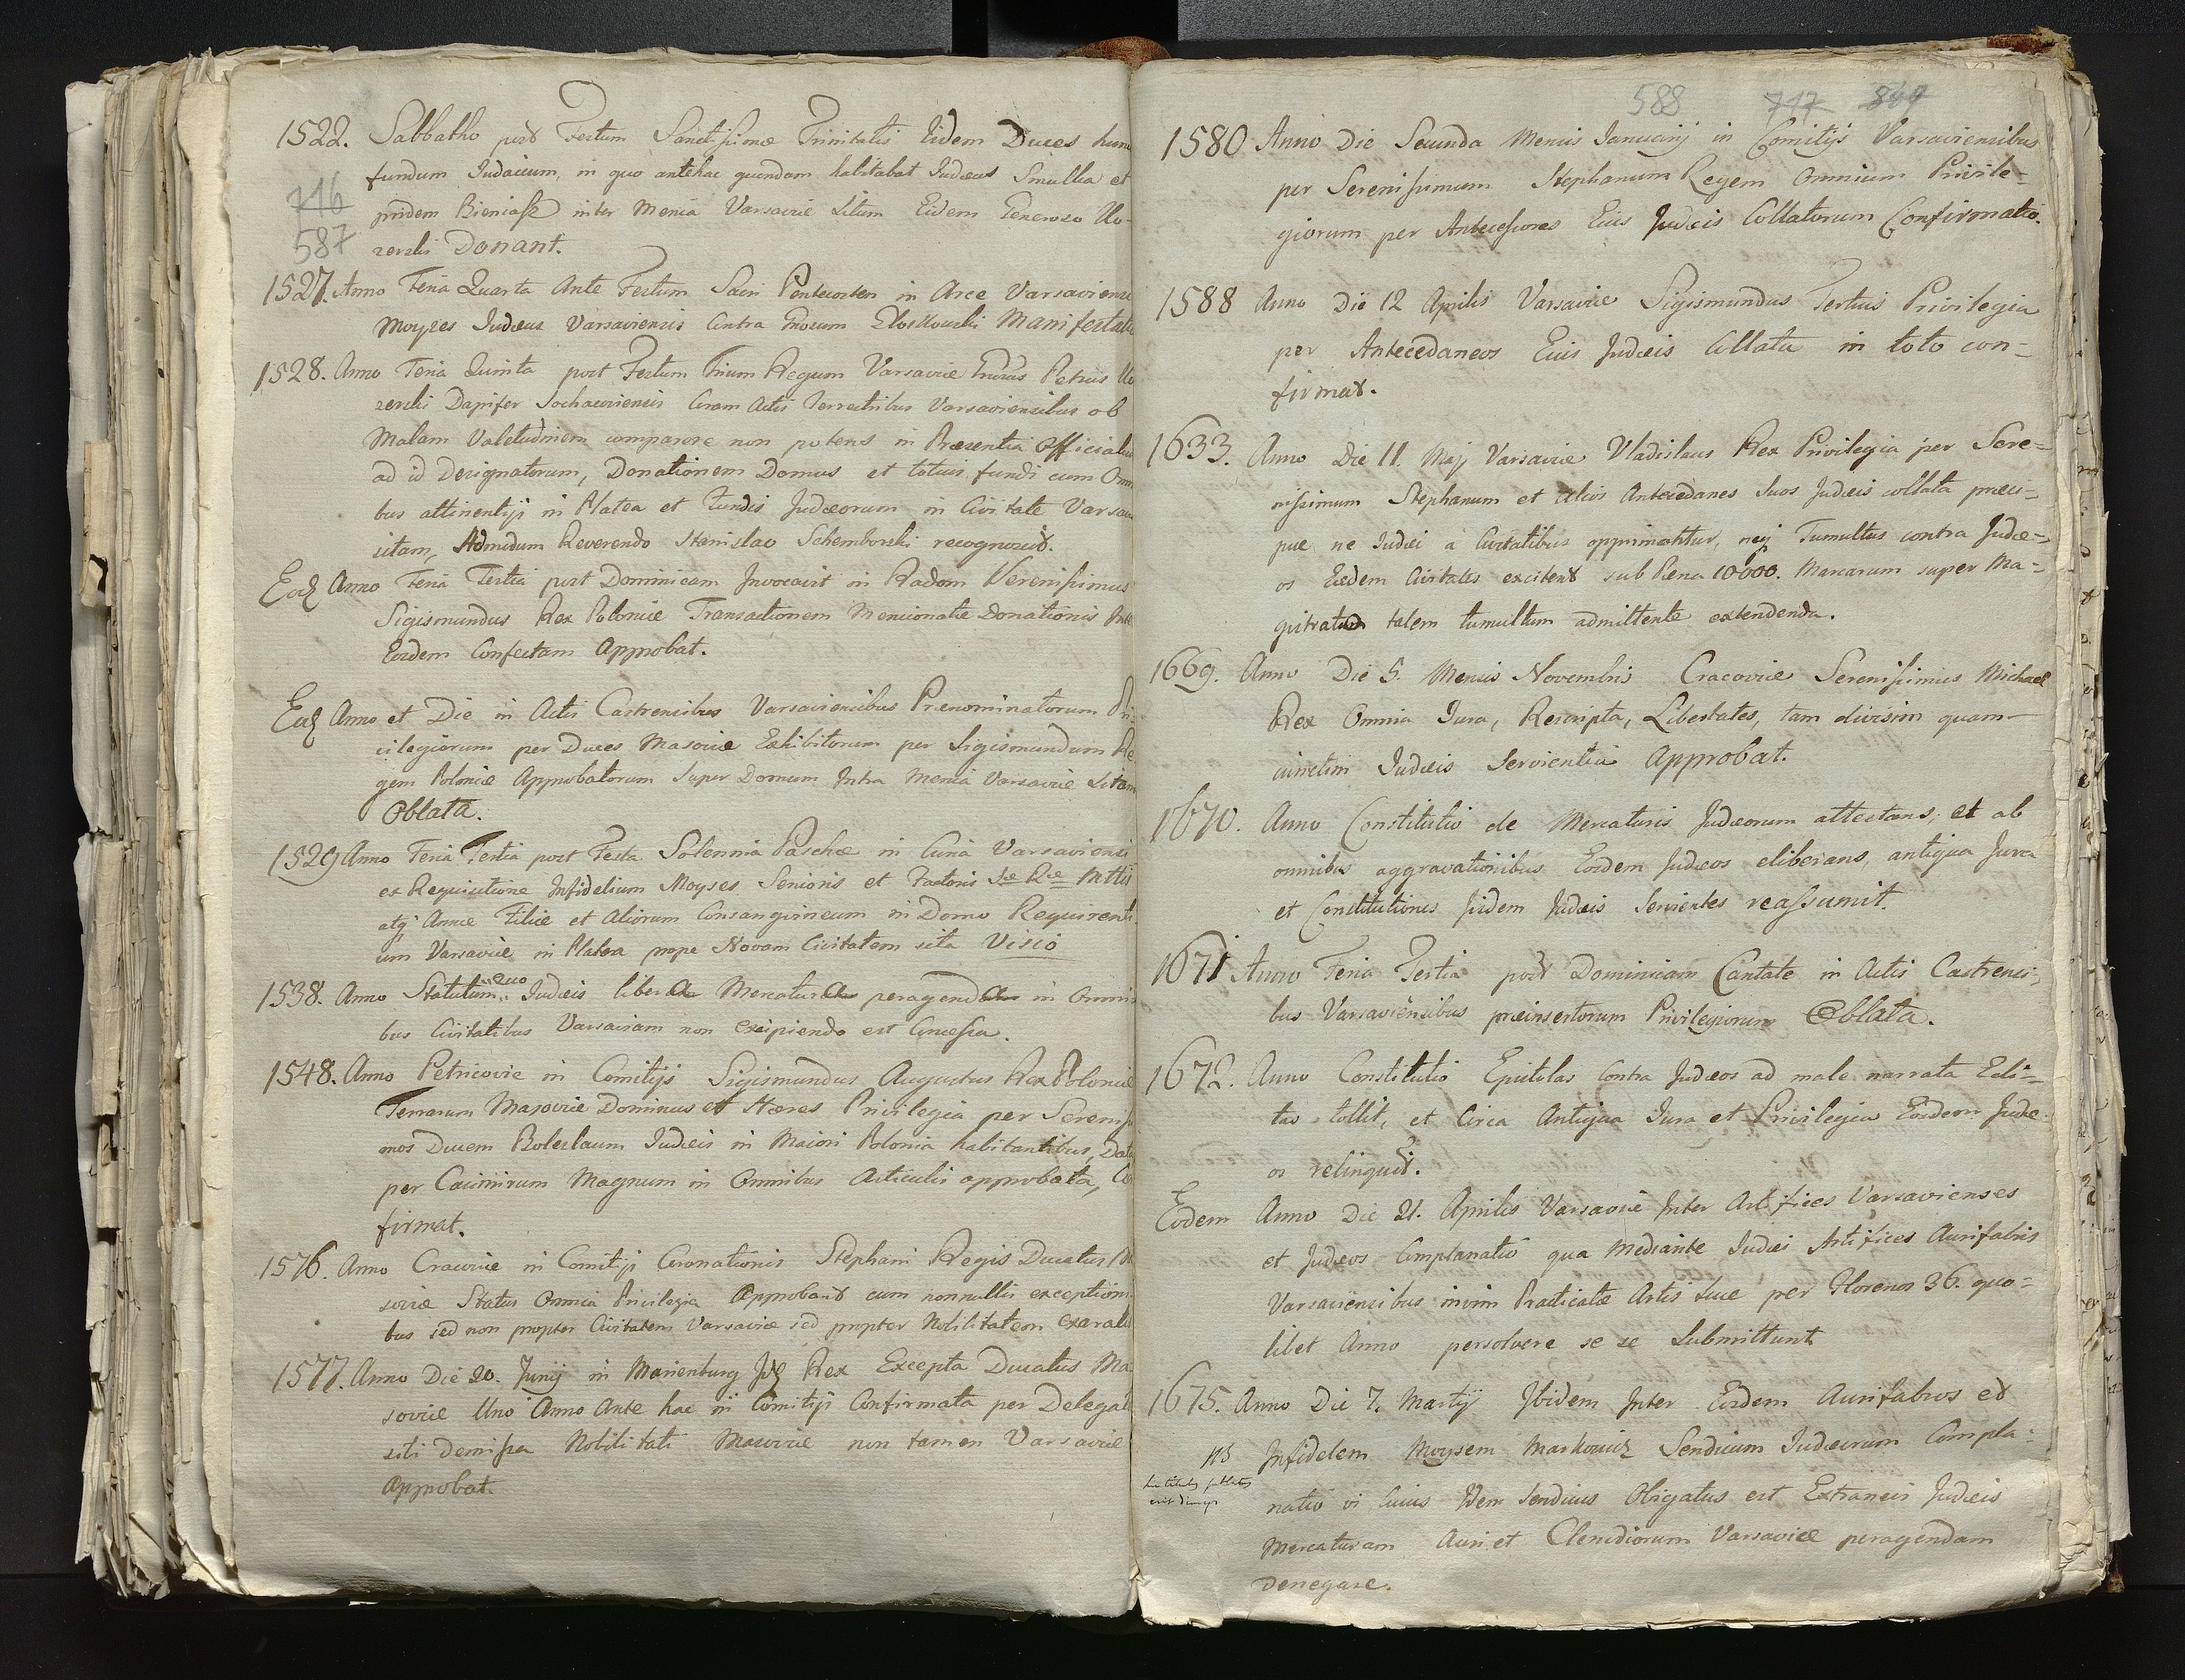 1522. Sabbatho post Festum Sanctissimæ Trinitatis Eidem Duces hunc
fundum Judaicum, in quo antehac quendam habitabat Judæus Smullia et
pridem Bieniasz inter Menia Varsaviæ Situm Eidem Generoso Uo-
zerski Donant.
746
587
1527. Anno Feria Quarta Ante Festum Sacri Pentecosten in Arce Varsaviensi
Moyzes Judæus Varsaviensis Contra Gnosum Manifestatur
1528. Anno Feria Quinta post Festum Trium Regum Varsaviæ Petrus Uo
zerski Dapifer Sochaczoviensis Coram Actis Terrestribus Varsaviensibus ob
Malam Valetudinem comparere non potens in Præsentia Officialium
ad id Designatorum, Donationem Domus et totius fundi cum Omni
bus attinentijs in Platea et Fundis Judæorum in Civitate Varsavi
sitam, Admodum Reverendo Stanislao Schemborski recognoscit.
Eod Anno Feria Tertia post Dominicam Invocavit in Radom Serenissimus
Sigismundus Rex Poloniæ Transactionem Mencionatæ Donationis Inter
Eosdem Confectam Approbat.
Eod Anno et Die in Actis Castrensibus Varsaviensibus Prænominatorum Pri
vilegiorum per Duces Masoviæ Exhibitorum per Sigismundum Re
gem Poloniæ Approbatorum Super Domum Intra Menia Varsaviæ Sitam
Oblata.
1529 Anno Feria Tertia post Festa Solennia Paschæ in Curia Varsaviensi
ex Requisitione Infidelium Moyses Senioris et Factoris Sæ Ræ Mttis
atq Annæ Filiæ et Aliorum Consangvineum in Domo Requirenti
um Varsaviæ in Platea prope Novam Civitatem sita Visio
1538. Anno Statutum quo Judæis libera Mercatura peragenda in Omni
bus Civitatibus Varsaviam non Excipiendo est Concessa.
1548. Anno Petricoviæ in Comitijs Sigismundus Augustus Rex Poloniæ
Terrarum Masoviæ Dominus et Hæres Privilegia per Serenissi
mos Ducem Boleslaum Judæis in Maiori Polonia habitantibus, Data
per Casimirum Magnum in Omnibus Articulis approbata, Con
firmat.
1576. Anno Cracoviæ in Comitijs Coronationis Stephani Regis Ducatus Ma
soviæ Status Omnia Privilegia Approbant cum nonnullis exceptioni
bus sed non propter Civitatem Varsaviæ sed propter Nobilitatem Exaratis
1577. Anno Die 20. Junij in Marienburg Id Rex Excepta Ducatus Ma
soviæ Uno Anno Ante hac in Comitijs Confirmata per Delegat
sibi Demissa Nobilitati Masoviæ non tamen Varsaviæ
Approbat.
588 717 869
1580 Anno Die Secunda Mensis Januarij in Comitijs Varsaviensibus
per Serenissimum Stephanum Regem Omnium Privile-
giorum per Antecessores Eius Judæis Collatorum Confirmatio.
1588 Anno Die 12 Aprilis Varsaviæ Sigismundus Tertius Privilegia
per Antecedaneos Eius Judæis Collata in toto con-
firmat.
1633. Anno Die 11. Maj Varsaviæ Vladislaus Rex Privilegia per Sere-
nissimum Stephanum et Alios Antecedanes Suos Judæis collata præci-
pue ne Judæi a Civitatibus opprimantur, neq Tumultus contra Judæ-
os Eædem Civitates excitent sub Pena 10000. Marcarum super Ma-
gistratum talem tumultum admittente extendenda.
1669. Anno Die 5. Mensis Novembris Cracoviæ Serenissimus Michael
Rex Omnia Jura, Rescripta, Libertates, tam divisim quam
cunctim Judæis Servientia Approbat.
1670. Anno Constitutio de Mercaturis Judæorum attestans, et ab
omnibus aggravationibus Eosdem Judæos eliberans, antiqua Jura
et Constitutiones iisdem Judæis Servientes reassumit.
1671 Anno Feria Tertia post Dominicam Cantate in Actis Castrensi-
bus Varsaviensibus præinsertorum Privilegiorum Oblata.
1672. Anno Constitutio Epistolas Contra Judæos ad male narrata Edi-
tas tollit, et Circa Antiqua Jura et Privilegia Eosdem Judæ-
os relinquit.
Eodem Anno Die 21. Aprilis Varsaviæ Inter Artifices Varsavienses
et Judæos Complanatio qua Mediante Judæi Artifices Aurifabris
Varsaviensibus Practicatæ Artis Suæ per Florenos 36. quo-
libet Anno persolvere se se Submittunt
1675. Anno Die 7. Martij Ibidem Inter Eosdem Aurifabros et
NB Infidelem Moysem Markowicz Sendicum Judæorum Compla-
natio vi Cuius Idem Sendicus Obligatus est Extraneis Judæis
Mercaturam Auri et Clenodiorum Varsaviæ peragendam
Denegare.